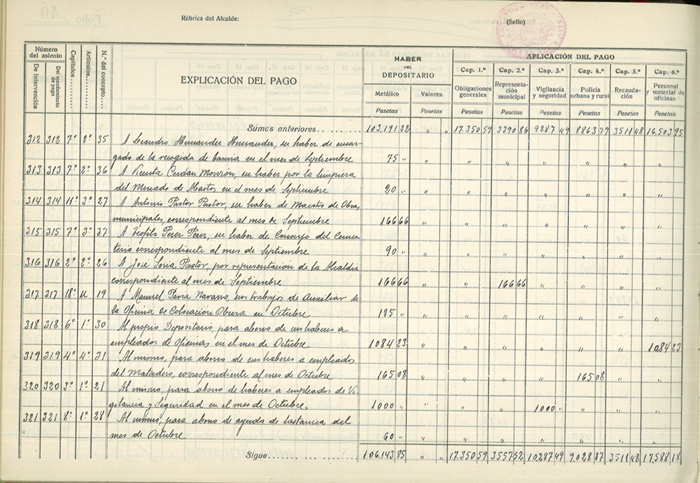 Rúbrica del Alcalde:
(Sello)
Número del asiento
De intervención
Del mandamiento de pago
Capítulos
Artículos
N.º del concepto
EXPLICACIÓN DEL PAGO
HABER DEL DEPOSITARIO
Metálico
Pesetas
Valores
Pesetas
APLICACIÓN DEL PAGO
Cap. 1.º
Obligaciones generales
Pesetas
Cap. 2.º
Representación municipal
Pesetas
Cap. 3.º
Vigilancia y seguridad
Pesetas
Cap. 4.º
Policía urbana y rural
Pesetas
Cap. 5.º
Recaudación
Pesetas
Cap. 6.º
Personal y material de oficinas
Pesetas
Sumas anteriores 103.191 22 " " 17.350 59 3390 86 9287 49 8863 79 3511 48 16.503 95
312 312 7º 8º 35 A Leandro Hernandez Hernandez, su haber de encar-
gado de la recogida de basura en el mes de Septiembre 75 "
313 313 7º 2º 36 A Vicenta Cerdan Monzon, su haber por la limpieza
del Mercado de Abastos en el mes de Septiembre 20 "
314 314 11º 3º 27 A Antonio Pastor Pastor, su haber de Maestro de Obras
municipales, correspondiente al mes de Septiembre 166 66
315 315 7º 3º 37 A Teofilo Perez Perez, su haber de Conserje del Cemen-
terio correspondiente al mes de Septiembre 90 "
316 316 2º 2º 26 A Jose Soria Pastor, por representacion de la Alcaldia
correspondiente al mes de Septiembre 166 66 166 66
317 317 18º u 19 A Manuel Parra Navarro, sus trabajos de Auxiliar de
la Oficina de Colocacion Obrera en Octubre 125 "
318 318 6º 1º 30 Al propio Depositario, para abono de sus haberes a
empleados de Oficinas en el mes de Octubre 1084 23 1084 23
319 319 4º 4º 31 Al mismo, para abono de sus haberes a empleados
del Matadero, correspondiente al mes de Octubre 165 08 165 08
320 320 3º 1º 21 Al mismo, para abono de haberes a empleados de Vi-
gilancia y Seguridad en el mes de Octubre 1000 " 1000 "
321 321 8º 1º 28 Al mismo, para abono de ayuda de lactancia del
mes de Octubre 60 "
Sigue 106.143 85 " " 17.350 59 3557 52 10287 49 9.028 87 3511 48 17.588 18